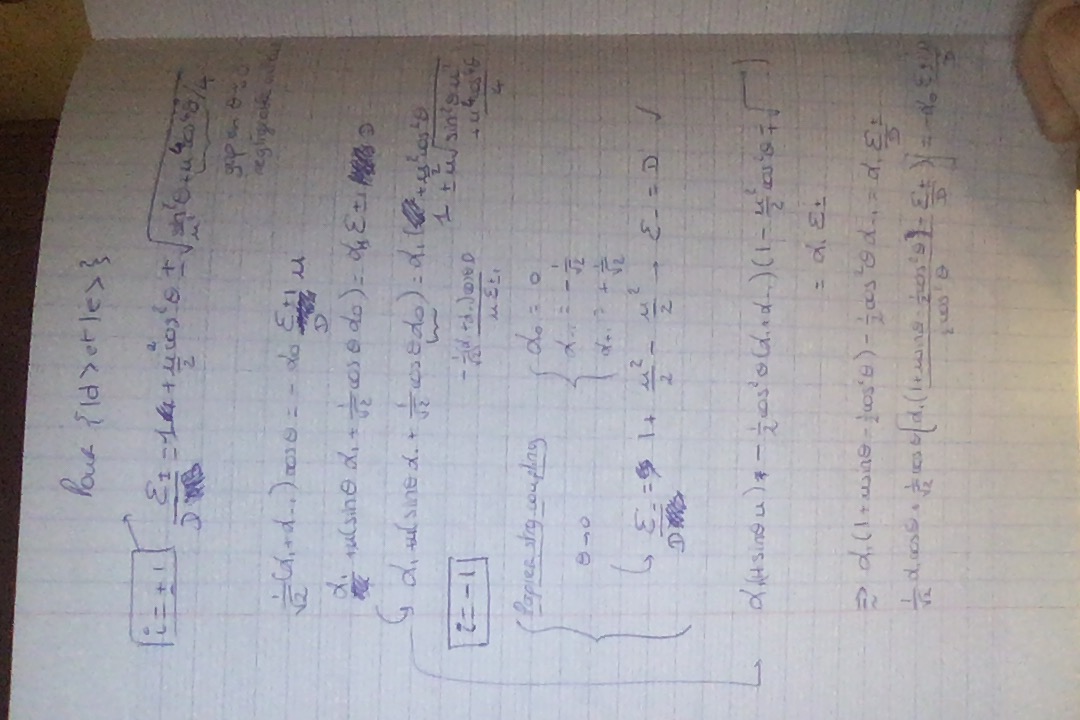 Pour {|d> et |e>}
i = ± 1
ε± / D = 1 + μ²/2 cos²θ ± √(sin²θ μ² + μ⁴cos⁴θ/4)
gap en θ → 0
negligeable
1/√2 (α₁ + α₋₁) cosθ = - α₀ ε±1 / D μ
α₁ + μ(sinθ α₁ + 1/√2 cosθ α₀) = α₁ ε±1 D
↳ α₁ + μ(sinθ α₁ + 1/√2 cosθ α₀) = α₁ ( + μ²cos²θ
1 ± 2 √(sin²θ μ² + μ⁴cos⁴θ / 4
i = -1
- 1/√2 (α₁ + α₋₁) cosθ D / μ ε±1
Papier strg coupling
θ → 0
α₀ = 0
α₋₁ = - 1/√2
α₊₁ = + 1/√2
↳ ε₋ / D = 1 + μ²/2 - μ²/2 → ε₋ = D ✓
α₁(1+sinθ μ) - 1/2 cos²θ (α₁ + α₋₁) (1 - μ²/2 cos²θ ∓ √ )
= α₁ ε±
⇒ α₁ (1 + μsinθ - 1/2 cos²θ) - 1/2 cos²θ α₋₁ = α₁ ε± / D
1/√2 α₁ cosθ + 1/√2 cosθ [α₁ (1 + μsinθ - 1/2 cos²θ) - ε± / D) / 1/2 cos²θ] = - α₀ ε± μ / D